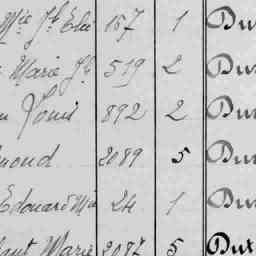 Mie Jh Elie 157 1 Du
Marie Jh 519 2 Du
Louis 892 2 Du
mond 2089 5 Du
Edouard Mie 24 1 Du
Marie 2087 5 Dut